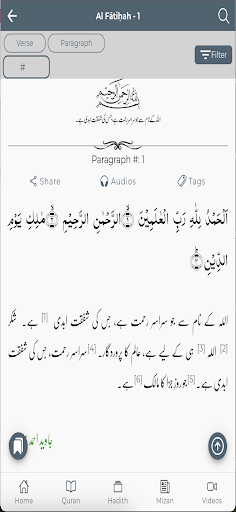 Al Fātiḥah - 1
Verse
Paragraph
Filter
#
بِسْمِ اللَّهِ الرَّحْمَٰنِ الرَّحِيمِ
اللہ کے نام سے جو سراسر رحمت ہے، جس کی شفقت ابدی ہے۔
Paragraph #: 1
Share
Audios
Tags
اَلْحَمْدُ لِلّٰهِ رَبِّ الْعٰلَمِيْنَ ۝١ الرَّحْمٰنِ الرَّحِيْمِ ۝٢ مٰلِكِ يَوْمِ
الدِّيْنِ ۝٣
اللہ کے نام سے جو سراسر رحمت ہے، جس کی شفقت ابدی [1] ہے۔ شکر
[2] اللہ [3] ہی کے لیے ہے، عالم کا پروردگار۔ [4] سراسر رحمت، جس کی شفقت
ابدی ہے۔ [5] جو روز جزا کا مالک [6] ہے۔
جاوید احمد
Home
Quran
Hadith
Mizan
Videos